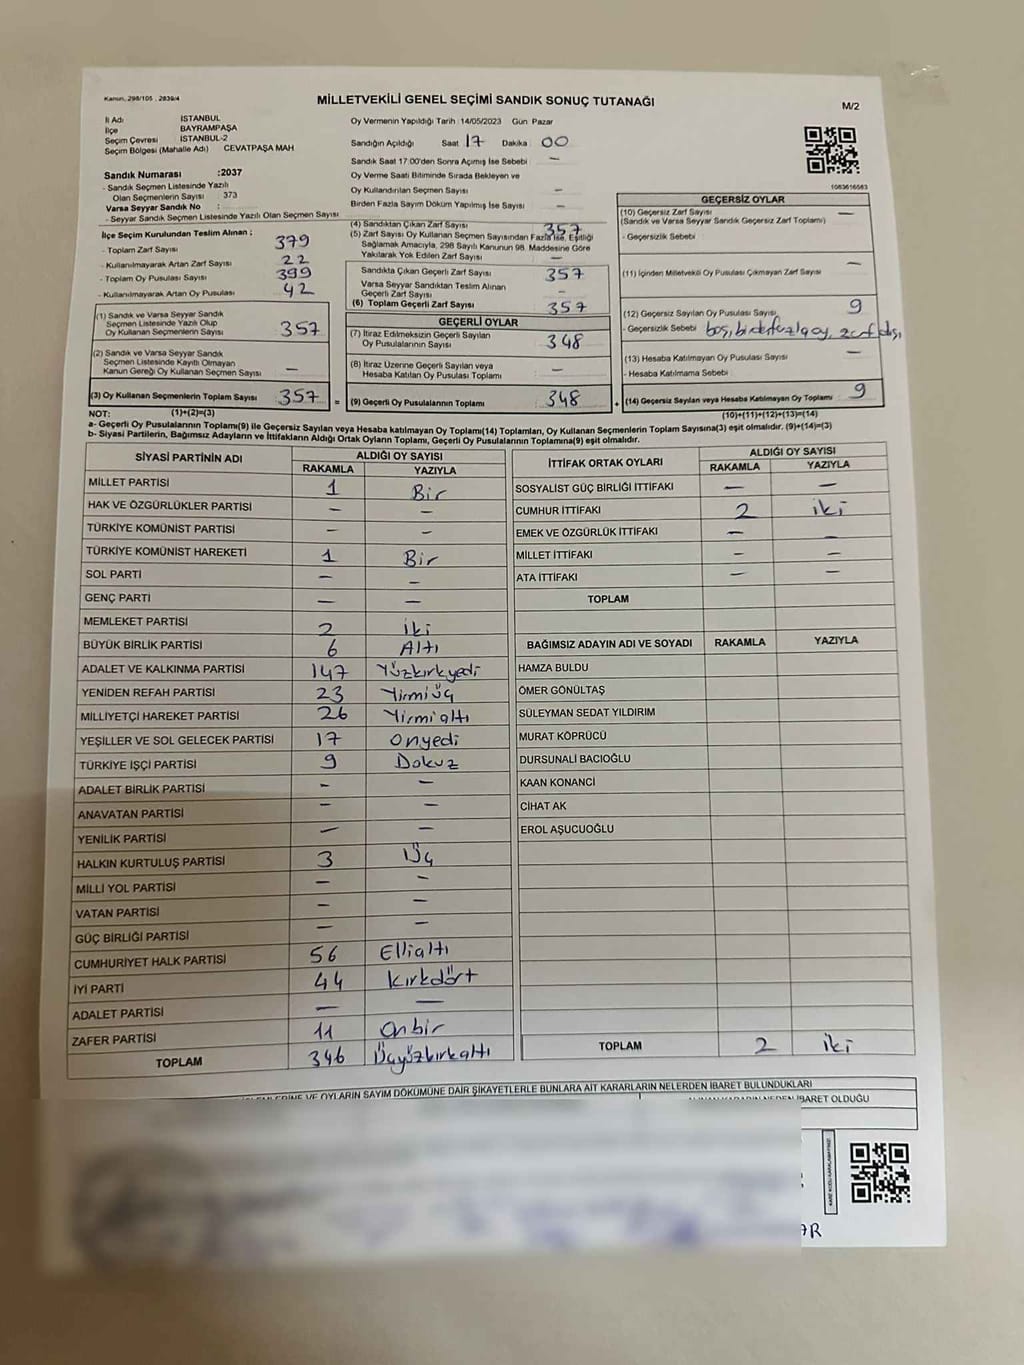 Kanun, 298/105 , 2839/4
MİLLETVEKİLİ GENEL SEÇİMİ SANDIK SONUÇ TUTANAĞI
M/2
İli Adı : İSTANBUL
İlçe : BAYRAMPAŞA
Seçim Çevresi : İSTANBUL-2
Seçim Bölgesi (Mahalle Adı) : CEVATPAŞA MAH
Sandık Numarası :2037
- Sandık Seçmen Listesinde Yazılı
Olan Seçmenlerin Sayısı : 373
Varsa Seyyar Sandık No :
- Seyyar Sandık Seçmen Listesinde Yazılı Olan Seçmen Sayısı :
Oy Vermenin Yapıldığı Tarih :14/05/2023 Gün: Pazar
Sandığın Açıldığı Saat 17 Dakika 00
Sandık Saat 17.00'den Sonra Açımış İse Sebebi : —
Oy Verme Saati Bitiminde Sırada Bekleyen ve
Oy Kullandırılan Seçmen Sayısı : —
Birden Fazla Sayım Döküm Yapılmış İse Sayısı : —
1063616563
İlçe Seçim Kurulundan Teslim Alınan ;
- Toplam Zarf Sayısı : 379
- Kullanılmayarak Artan Zarf Sayısı : 22
- Toplam Oy Pusulası Sayısı : 399
- Kullanılmayarak Artan Oy Pusulası : 42
(1) Sandık ve Varsa Seyyar Sandık
Seçmen Listesinde Yazılı Olup
Oy Kullanan Seçmenlerin Sayısı : 357
(2) Sandık ve Varsa Seyyar Sandık
Seçmen Listesinde Kayıtlı Olmayan
Kanun Gereği Oy Kullanan Seçmen Sayısı : —
(3) Oy Kullanan Seçmenlerin Toplam Sayısı : 357
(4) Sandıktan Çıkan Zarf Sayısı : 357
(5) Zarf Sayısı Oy Kullanan Seçmen Sayısından Fazla İse, Eşitliği
Sağlamak Amacıyla, 298 Sayılı Kanunun 98. Maddesine Göre
Yakılarak Yok Edilen Zarf Sayısı : —
Sandıkta Çıkan Geçerli Zarf Sayısı : 357
Varsa Seyyar Sandıktan Teslim Alınan
Geçerli Zarf Sayısı : —
(6) Toplam Geçerli Zarf Sayısı : 357
GEÇERLİ OYLAR
(7) İtiraz Edilmeksizin Geçerli Sayılan
Oy Pusulalarının Sayısı : 348
(8) İtiraz Üzerine Geçerli Sayılan veya
Hesaba Katılan Oy Pusulası Toplamı : —
= (9) Geçerli Oy Pusulalarının Toplamı : 348
GEÇERSİZ OYLAR
(10) Geçersiz Zarf Sayısı : —
(Sandık ve Varsa Seyyar Sandık Geçersiz Zarf Toplamı)
- Geçersizlik Sebebi :
(11) İçinden Milletvekili Oy Pusulası Çıkmayan Zarf Sayısı : —
(12) Geçersiz Sayılan Oy Pusulası Sayısı : 9
- Geçersizlik Sebebi : boş, birden fazla oy, zarf dışı
(13) Hesaba Katılmayan Oy Pusulası Sayısı : —
- Hesaba Katılmama Sebebi :
+ (14) Geçersiz Sayılan veya Hesaba Katılmayan Oy Toplamı : 9
NOT: (1)+(2)=(3) (10)+(11)+(12)+(13)=(14)
a- Geçerli Oy Pusulalarının Toplamı(9) ile Geçersiz Sayılan veya Hesaba katılmayan Oy Toplamı(14) Toplamları, Oy Kullanan Seçmenlerin Toplam Sayısına(3) eşit olmalıdır. (9)+(14)=(3)
b- Siyasi Partilerin, Bağımsız Adayların ve İttifakların Aldığı Ortak Oyların Toplamı, Geçerli Oy Pusulalarının Toplamına(9) eşit olmalıdır.
SİYASİ PARTİNİN ADI ALDIĞI OY SAYISI
RAKAMLA YAZIYLA
MİLLET PARTİSİ 1 Bir
HAK VE ÖZGÜRLÜKLER PARTİSİ — —
TÜRKİYE KOMÜNİST PARTİSİ — —
TÜRKİYE KOMÜNİST HAREKETİ 1 Bir
SOL PARTİ — —
GENÇ PARTİ — —
MEMLEKET PARTİSİ 2 İki
BÜYÜK BİRLİK PARTİSİ 6 Altı
ADALET VE KALKINMA PARTİSİ 147 Yüzkırkyedi
YENİDEN REFAH PARTİSİ 23 Yirmiüç
MİLLİYETÇİ HAREKET PARTİSİ 26 Yirmialtı
YEŞİLLER VE SOL GELECEK PARTİSİ 17 Onyedi
TÜRKİYE İŞÇİ PARTİSİ 9 Dokuz
ADALET BİRLİK PARTİSİ — —
ANAVATAN PARTİSİ — —
YENİLİK PARTİSİ — —
HALKIN KURTULUŞ PARTİSİ 3 Üç
MİLLİ YOL PARTİSİ — —
VATAN PARTİSİ — —
GÜÇ BİRLİĞİ PARTİSİ — —
CUMHURİYET HALK PARTİSİ 56 Ellialtı
İYİ PARTİ 44 Kırkdört
ADALET PARTİSİ — —
ZAFER PARTİSİ 11 Onbir
TOPLAM 346 Üçyüzkırkaltı
İTTİFAK ORTAK OYLARI ALDIĞI OY SAYISI
RAKAMLA YAZIYLA
SOSYALİST GÜÇ BİRLİĞİ İTTİFAKI — —
CUMHUR İTTİFAKI 2 iki
EMEK VE ÖZGÜRLÜK İTTİFAKI — —
MİLLET İTTİFAKI — —
ATA İTTİFAKI — —
TOPLAM
BAĞIMSIZ ADAYIN ADI VE SOYADI RAKAMLA YAZIYLA
HAMZA BULDU
ÖMER GÖNÜLTAŞ
SÜLEYMAN SEDAT YILDIRIM
MURAT KÖPRÜCÜ
DURSUNALİ BACIOĞLU
KAAN KONANCİ
CİHAT AK
EROL AŞUCUOĞLU
TOPLAM 2 iki
VE OYLARIN SAYIM DÖKÜMÜNE DAİR ŞİKAYETLERLE BUNLARA AİT KARARLARIN NELERDEN İBARET BULUNDUKLARI
İBARET OLDUĞU